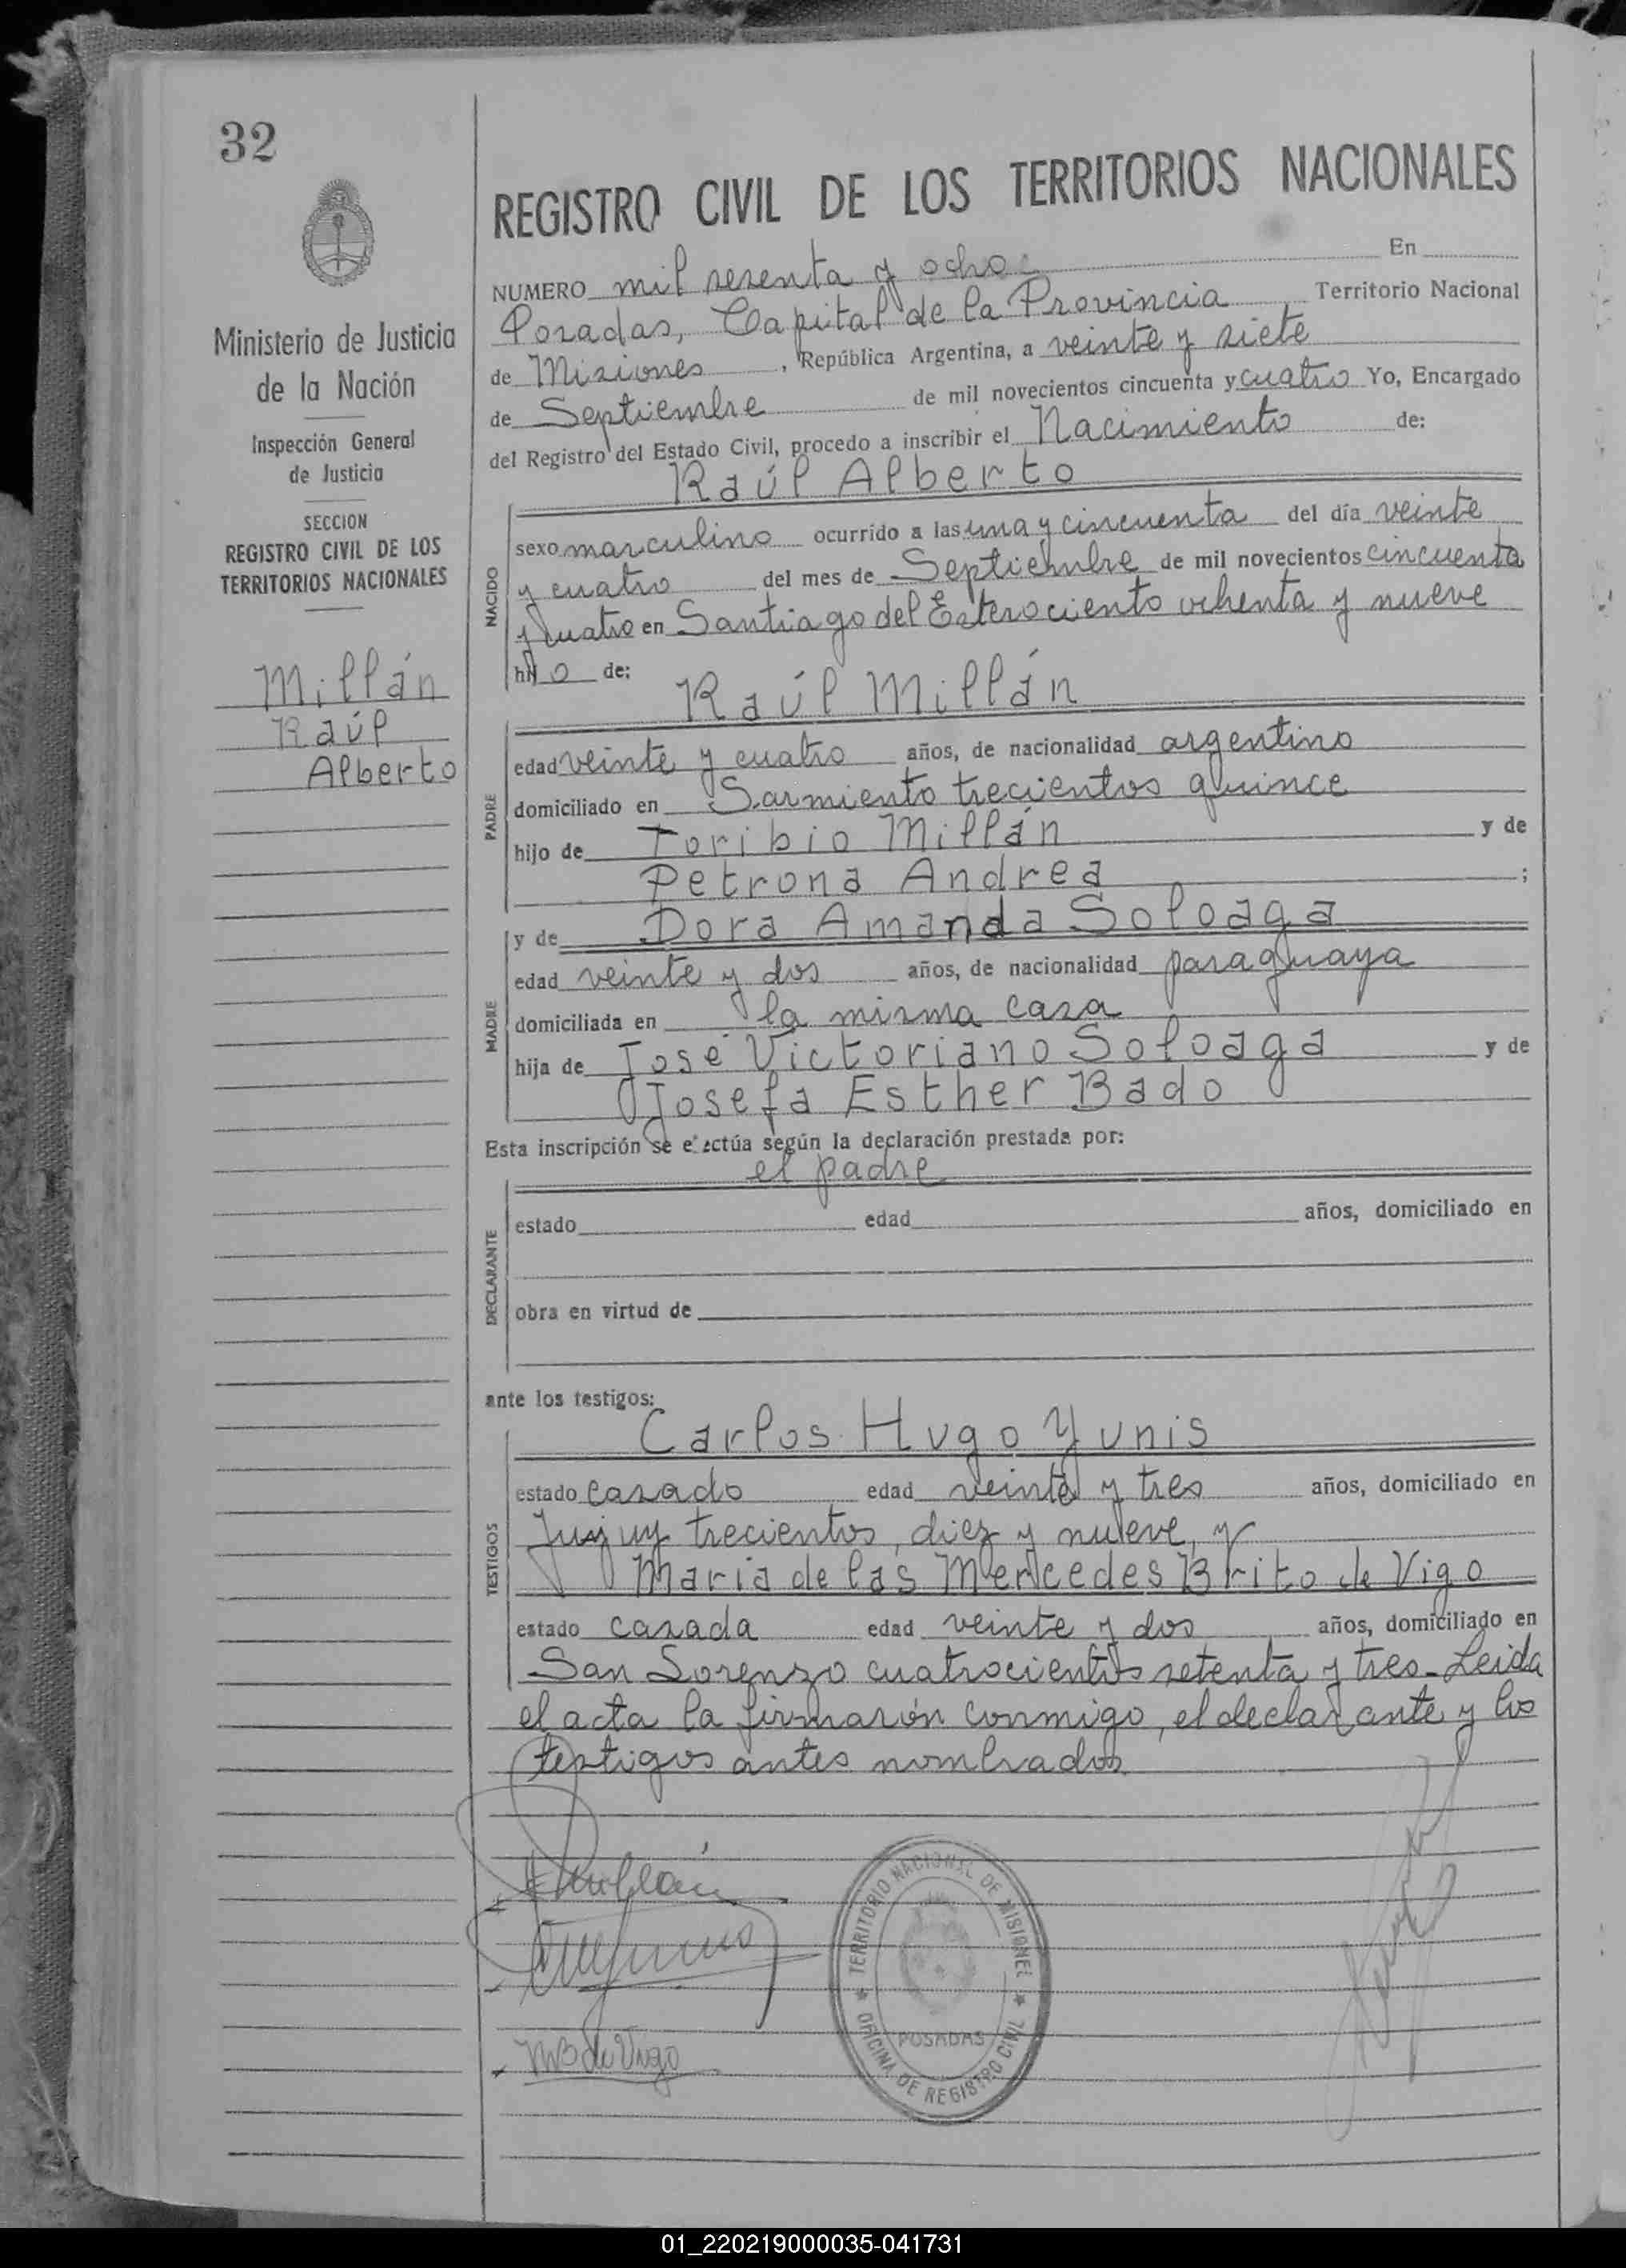 32
Ministerio de Justicia
de la Nación
Inspección General
de Justicia
SECCION
REGISTRO CIVIL DE LOS
TERRITORIOS NACIONALES
Millán
Raúl
Alberto
REGISTRO CIVIL DE LOS TERRITORIOS NACIONALES
NUMERO mil sesenta y ocho En
Posadas, Capital de la Provincia, Territorio Nacional
de Misiones, República Argentina, a veinte y siete
de Septiembre de mil novecientos cincuenta y cuatro Yo, Encargado
del Registro del Estado Civil, procedo a inscribir el Nacimiento de:
Raúl Alberto
NACIDO
sexo masculino ocurrido a las una y cincuenta del día veinte
y cuatro del mes de Septiembre de mil novecientos cincuenta
y cuatro en Santiago del Estero ciento ochenta y nueve
hijo de:
Raúl Millán
PADRE
edad veinte y cuatro años, de nacionalidad argentino
domiciliado en Sarmiento trecientos quince
hijo de Toribio Millán y de
Petrona Andrea ;
y de Dora Amanda Soloaga
MADRE
edad veinte y dos años, de nacionalidad paraguaya
domiciliada en la misma casa
hija de José Victoriano Soloaga y de
Josefa Esther Bado
Esta inscripción se efectúa según la declaración prestada por:
el padre
DECLARANTE
estado edad años, domiciliado en
obra en virtud de
ante los testigos:
Carlos Hugo Yunis
TESTIGOS
estado casado edad veinte y tres años, domiciliado en
Jujuy trecientos, diez y nueve, y
Maria de las Mercedes Brito de Vigo
estado casada edad veinte y dos años, domiciliado en
San Lorenzo cuatrocientos setenta y tres_ Leida
el acta la firmarón conmigo, el declarante y los
testigos antes nombrados
Millán
MB de Vigo
TERRITORIO NACIONAL DE MISIONES
OFICINA DE REGISTRO CIVIL
POSADAS
01_220219000035-041731